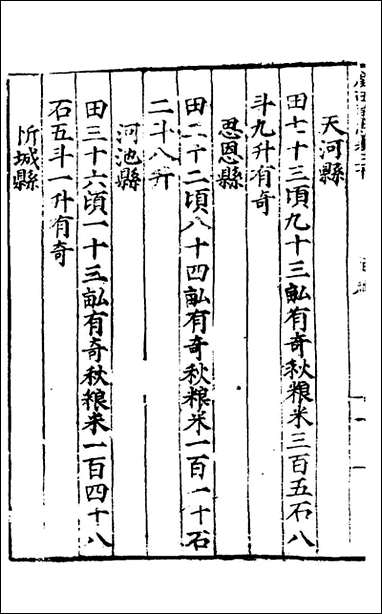 天河縣
田七十三頃九十三畝有奇秋糧米三百五石八
斗九升有奇
思恩縣
田二十二頃八十四畝有奇秋粮米一百一十石
二斗八升
河池縣
田三十六頃一十三畝有奇秋粮米一百四十八
石五斗一升有奇
忻城縣